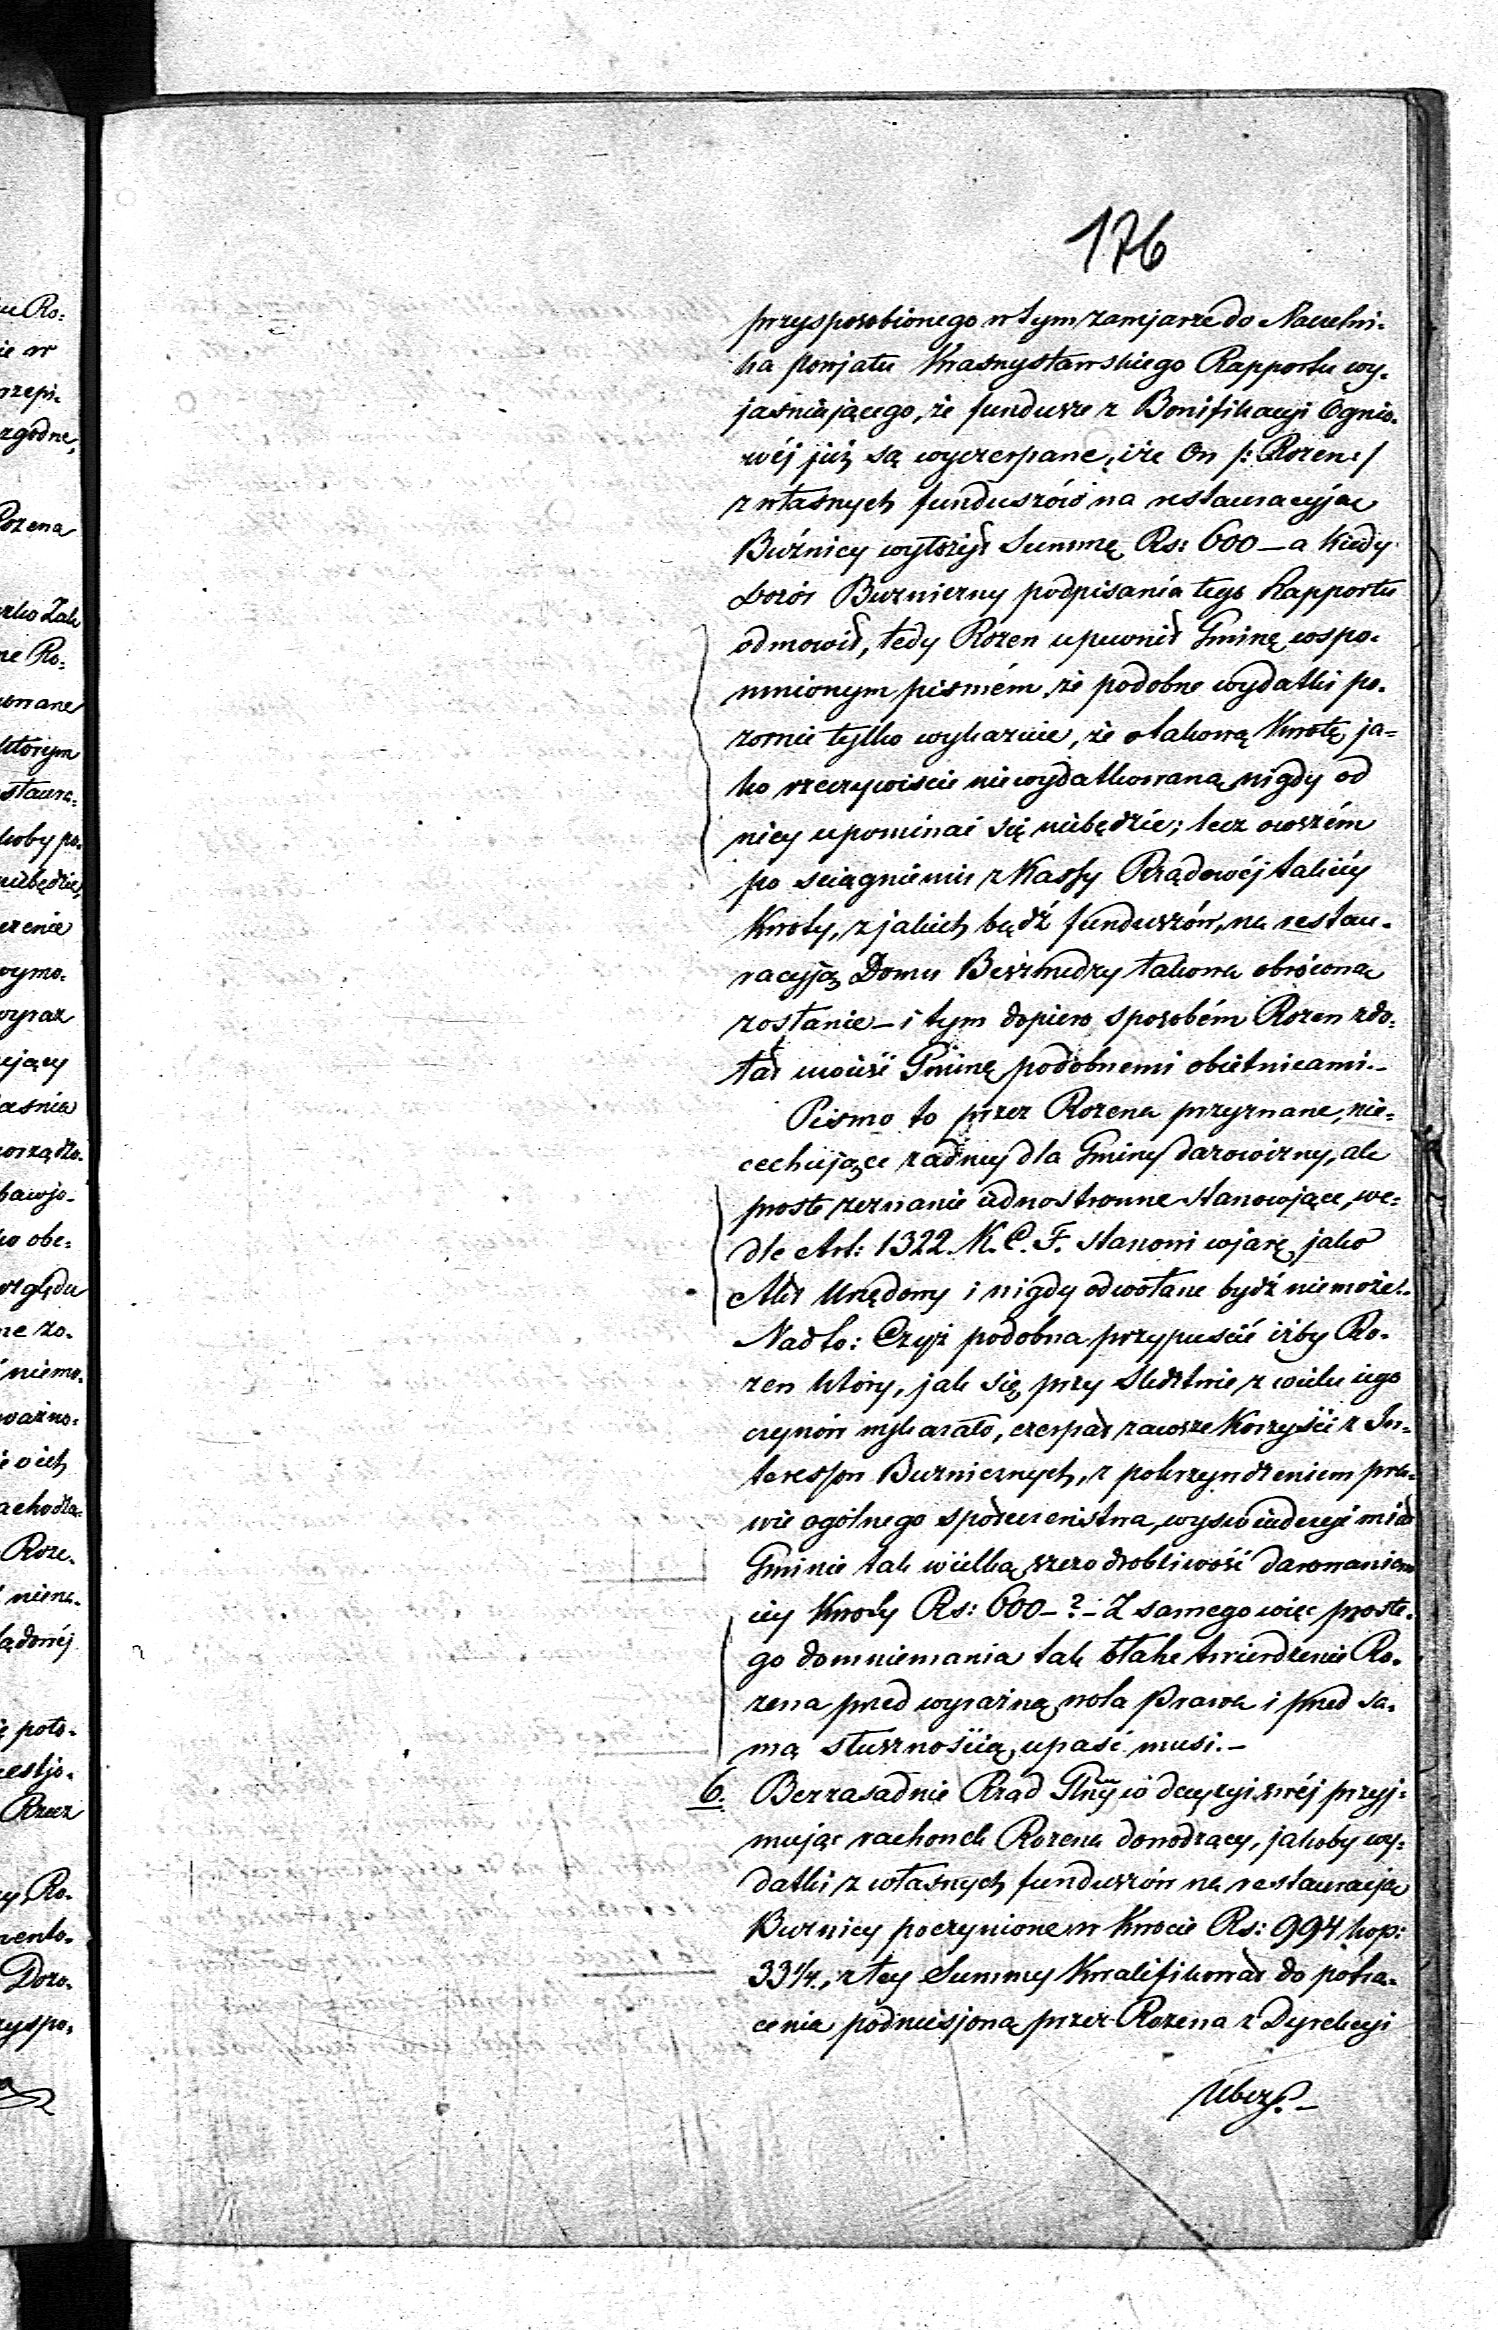 176
przysposobionego w tym zamjarze do Naczelni-
ka powjatu Krasnystawskiego Rapportu wy-
jaśniającego, że fundusze z Bonifikacyi Ognio-
wéj już są wyczerpane, i że On /: Rozen :/
z własnych funduszów na restauracyja
Bużnicy wyłożył Summę Rs: 600 – a kiedy
Dozór Bużniczny podpisania tego Rapportu
odmowił, tedy Rozen upewnił Gminę wspo-
mnionym pismém, że podobne wydatki po-
zornie tylko wykazuie, że o takową Kwotę ja=
ko rzeczywiscie niewydatkowaną nigdy od
niey upominać się niebędzie; lecz owszém
po sciągnieniu z Kassy Rządowéj takiéy
Kwoty, z jakich bądź funduszów, na restau-
racyją Domu Beszmedzy takowa obrócona
zostanie – i tym dopiero sposobém Rozen zdo-
łał uwieść Gminę podobnemi obietnicami. –
Pismo to przez Rozena przyznane, nie=
cechujące żadney dla Gminy darowizny, ale
proste zeznanie iednostronne stanowjące, we=
dle Art: 1322 K. C. F. stanowi wjarę jako
Akt Urzędowy i nigdy odwołane bydź niemoże. –
Nadto: Czyż podobna przypuścić iżby Ro-
zen który, jak się przy Sledztwie z wielu iego
czynów wykazało, czerpał zawsze Korzyści z In-
teressow Bużnicznych, z pokrzywdzeniem pra-
wie ogólnego społeczeństwa, wyswiadczyć miał
Gminie tak wielką szczodrobliwość darowaniem
iey Kwoty Rs: 600 – ? – Z samego więc proste-
go domniemania tak błahe twierdzenie Ro-
zena przed wyraźną wolą Prawa i przed sa-
mą słusznością, upaść musi. –
6. Bezzasadnie Rząd Glny w decyzyi swéj przyj=
mując rachonek Rozena dowodzący, jakoby wy=
datki z własnych funduszów na restauracja
Bużnicy poczynione w Kwocie Rs: 994 kop:
33 1/4, z tey Summy Kwalifikował do potrą-
cenia podniesjoną przez Rozena z Dyrekcyi
Ubezp. –